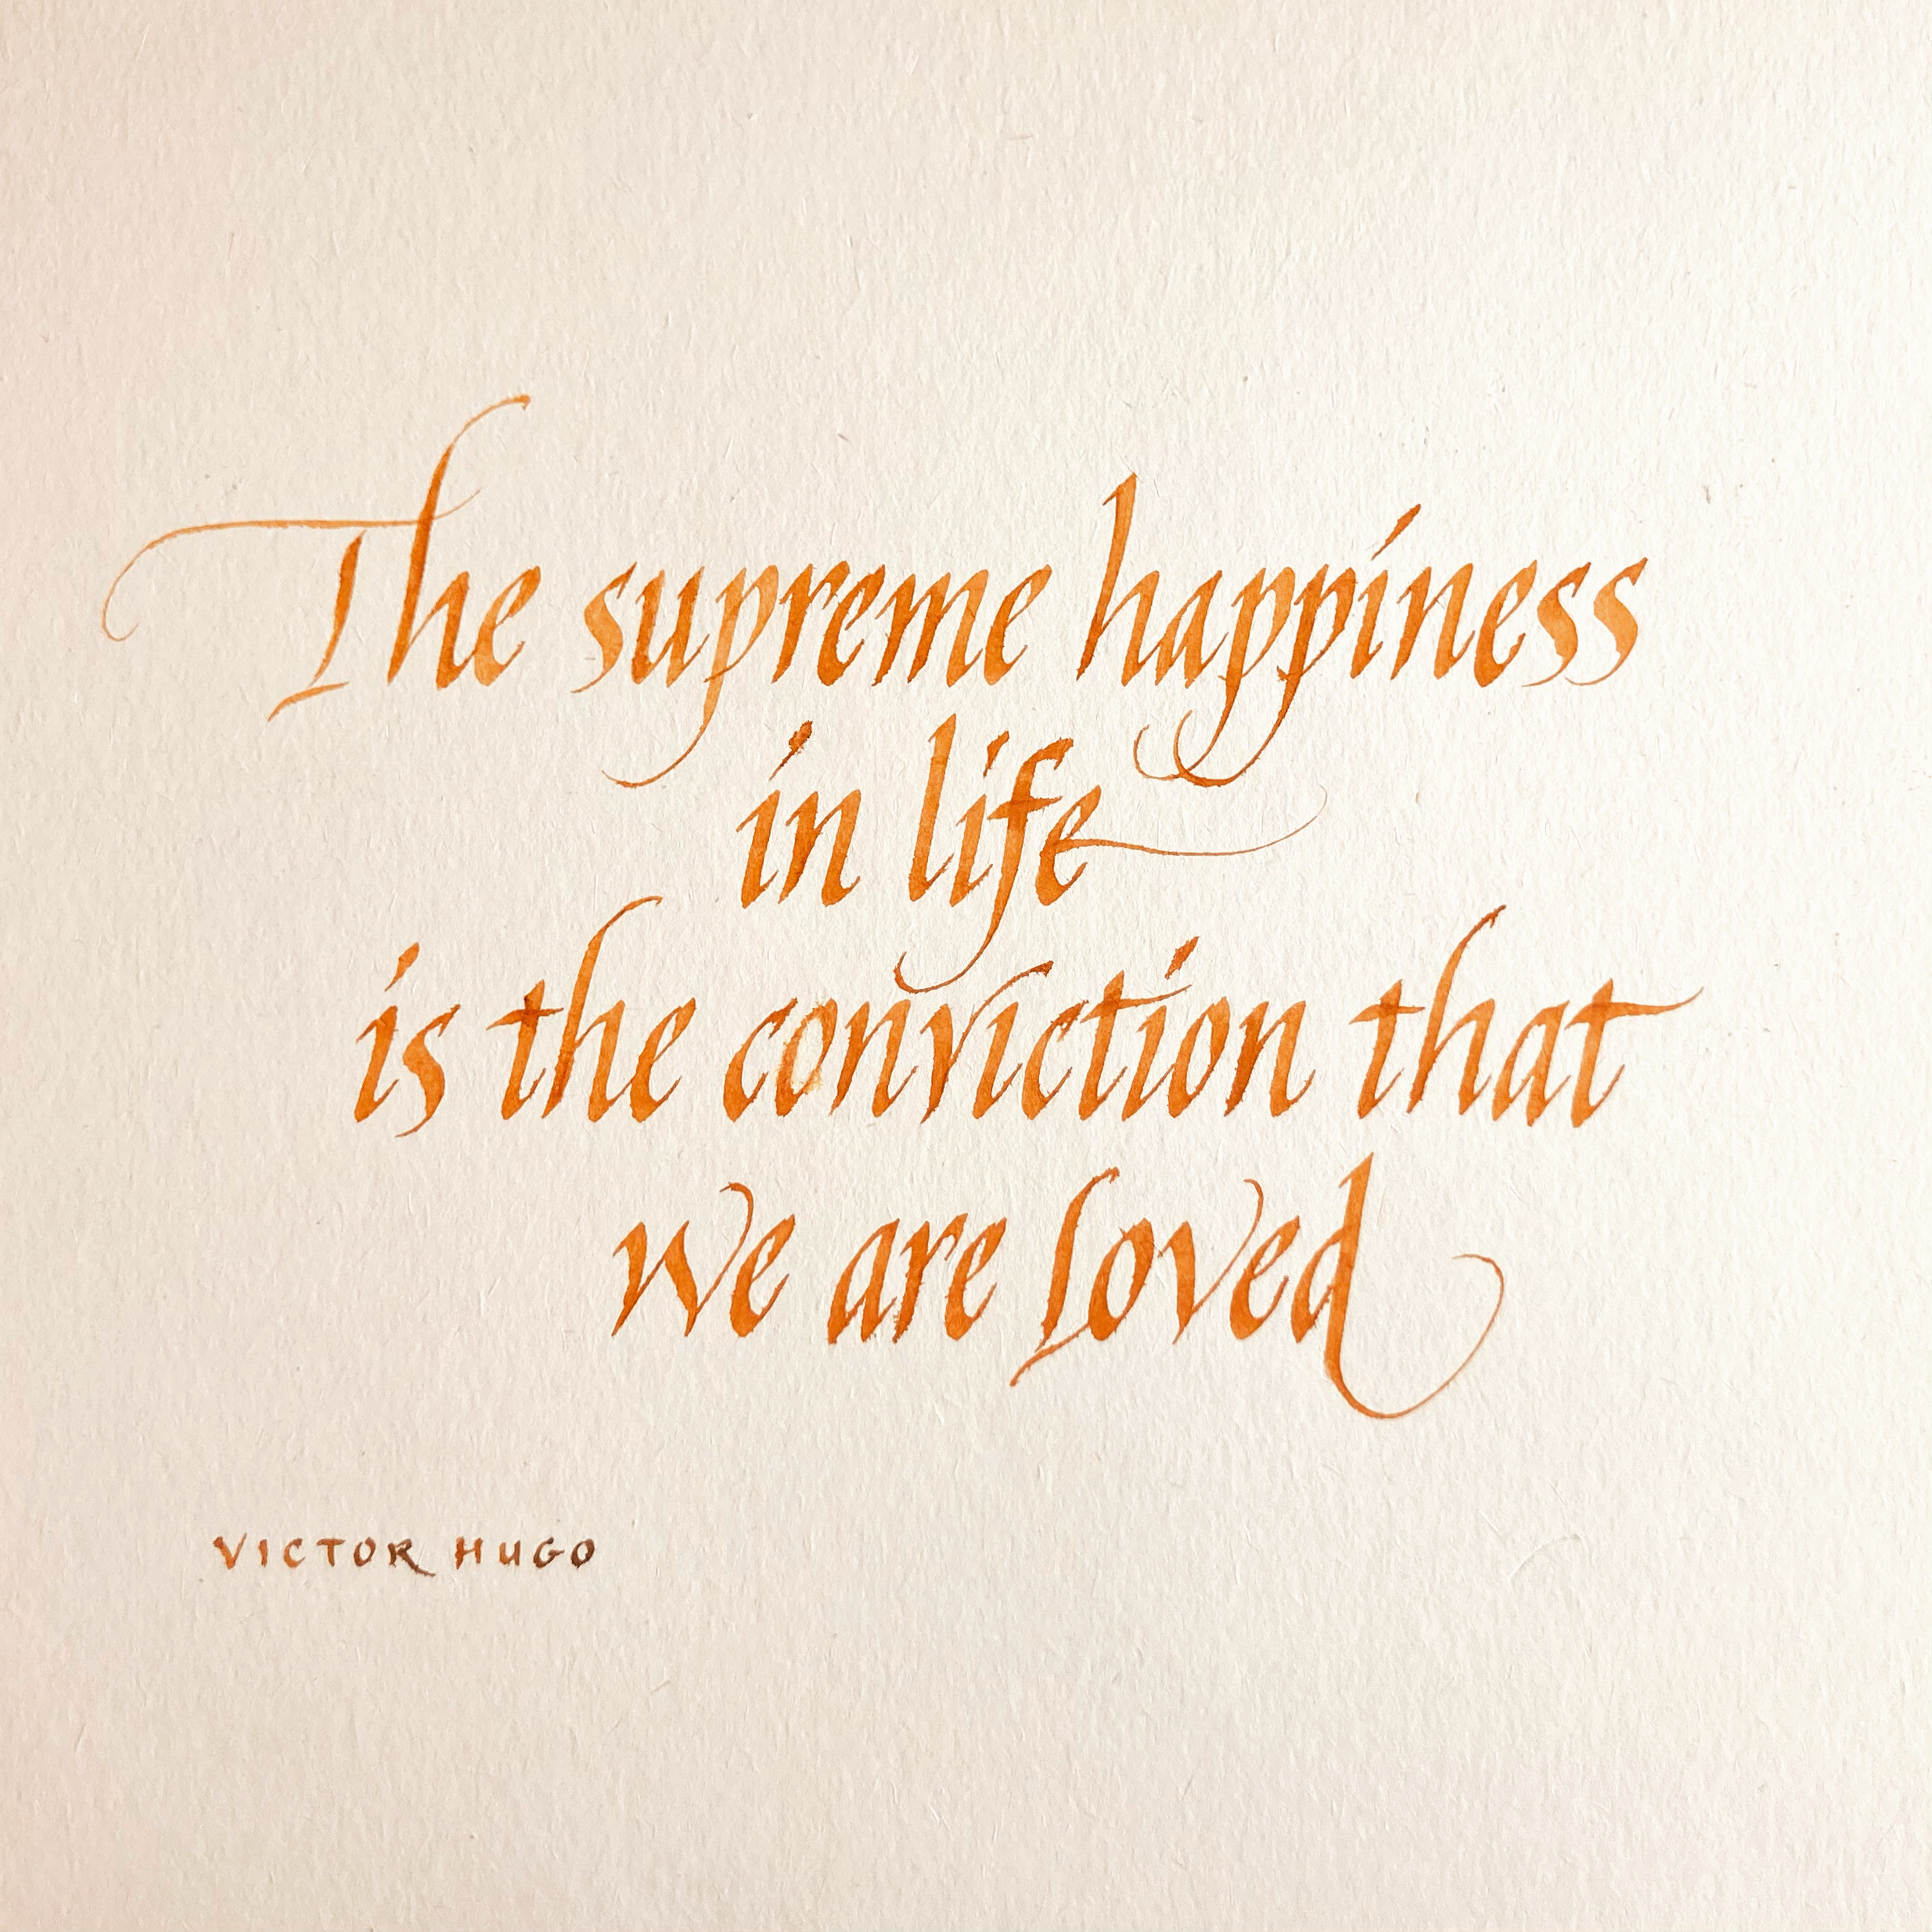 The supreme happiness
in life
is the conviction that
we are loved
VICTOR HUGO